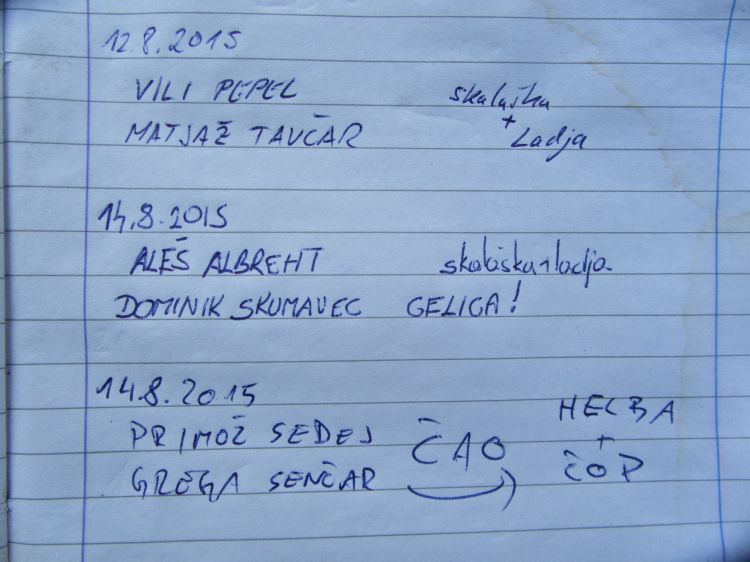 12.8.2015
VILI PEPEL skalaška
+
MATJAŽ TAVČAR Ladja
14.8.2015
ALEŠ ALBREHT skalaška+ladja
DOMINIK SKUMAVEC GELICA!
14.8.2015
HELBA
PRIMOŽ SEDEJ ČAO +
GREGA SENČAR ČOP